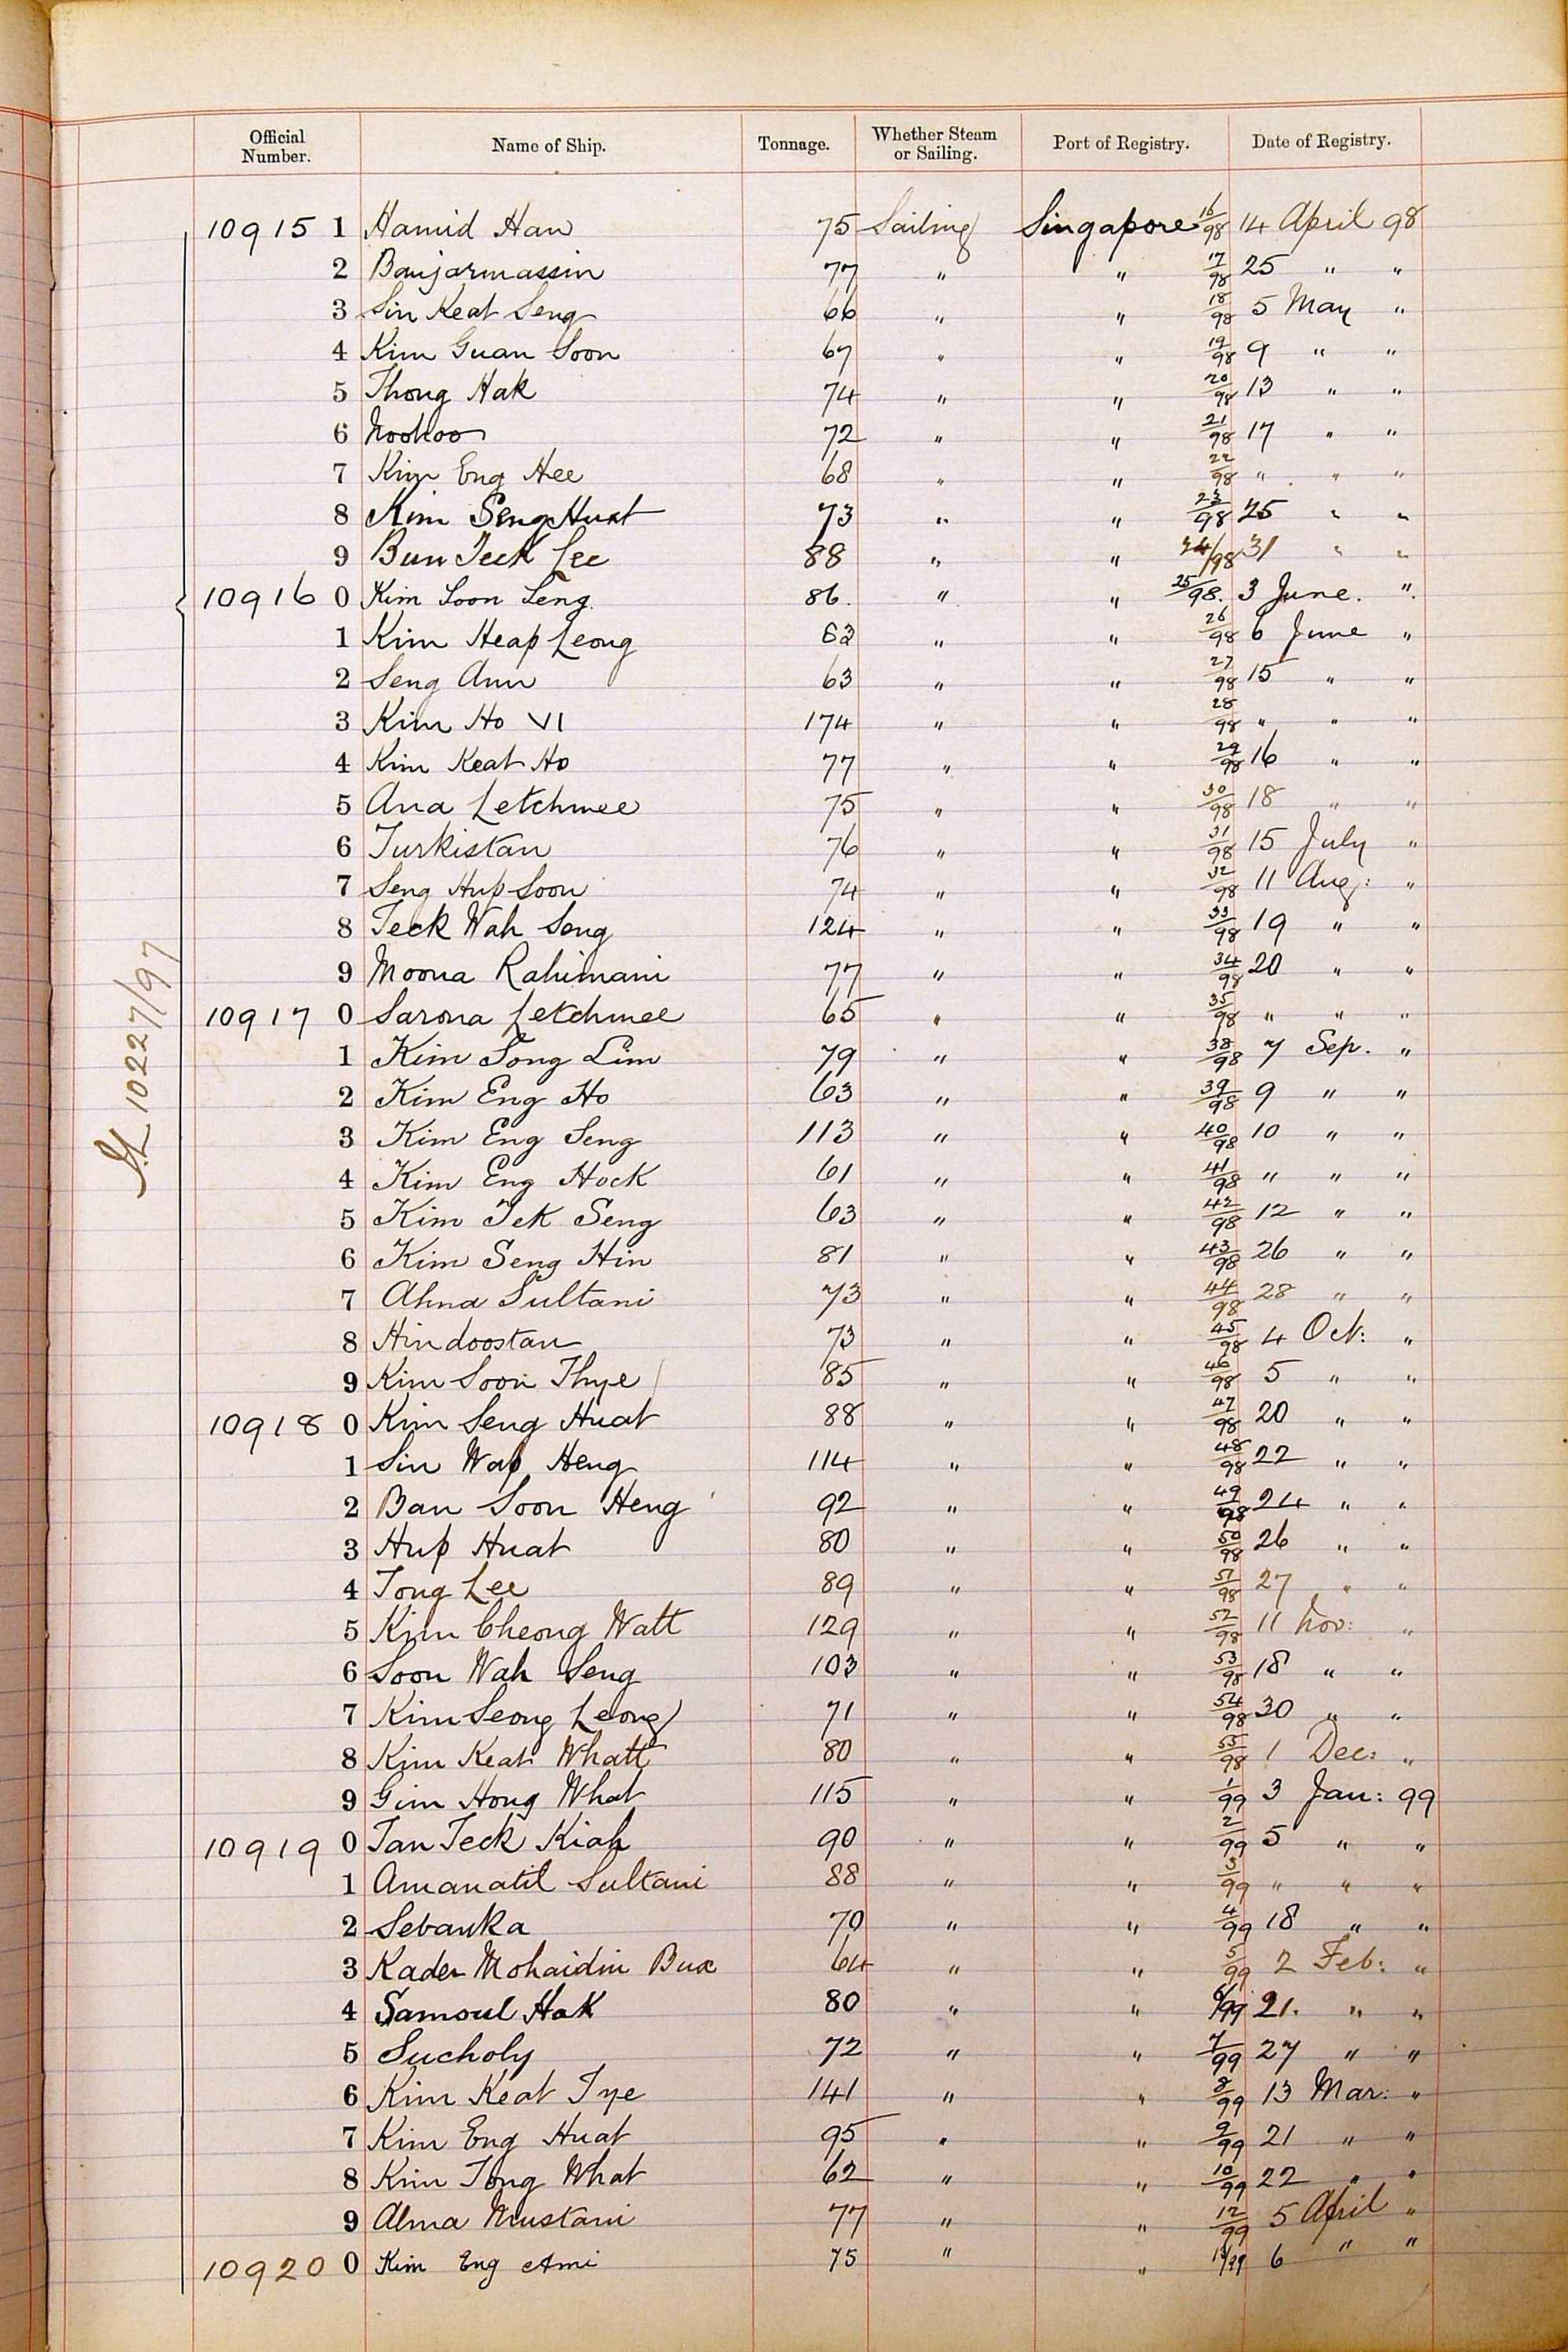 Official Number. Name of Ship. Tonnage. Whether Steam or Sailing. Port of Registry. Date of Registry.
10915 1 Hamid Han 75 Sailing Singapore 16/98 14 April 98
2 Banjarmassin 77 " " 17/98 25 " "
3 Sin Keat Seng 66 " " 18/98 5 May "
4 Kim Guan Soon 67 " " 19/98 9 " "
5 Thong Hak 74 " " 20/98 13 " "
6 72 " " 21/98 17 " "
7 Kim Eng Hee 68 " " 22/98 " " "
8 Kim Seng Huat 73 " " 23/98 25 " "
9 Bun Teck Lee 88 " " 24/98 31 " "
10916 0 Kim Soon Seng. 86. " " 25/98. 3 June. ".
1 Kim Heap Leong 63 " " 26/98 6 June "
2 Seng Ann 63 " " 27/98 15 " "
3 Kim Ho VI 174 " " 28/98 " " "
4 Kim Keat Ho 77 " " 29/98 16 " "
5 Ana Letchmee 75 " " 30/98 18 " "
6 Turkistan 76 " " 31/98 15 July "
7 Seng Hup Soon 74 " " 32/98 11 Aug: "
8 Teck Wah Song 124 " " 33/98 19 " "
9 Moona Rahimani 77 " " 34/98 20 " "
10917 0 Sarona Letchmee 65 " " 35/98 " " "
1 Kim Song Lim 79 " " 38/98 7 Sep. "
2 Kim Eng Ho 63 " " 39/98 9 " "
3 Kim Eng Seng 113 " " 40/98 10 " "
4 Kim Eng Hock 61 " " 41/98 " " "
5 Kim Tek Seng 63 " " 42/98 12 " "
6 Kim Seng Hin 81 " " 43/98 26 " "
7 Ahna Sultani 73 " " 44/98 28 " "
8 Hindoostan 73 " " 45/98 4 Oct: "
9 Kim Soon Thye 85 " " 46/98 5 " "
10918 0 Kim Seng Huat 88 " " 47/98 20 " "
1 Sin Wap Heng 114 " " 48/98 22 " "
2 Ban Soon Heng 92 " " 49/98 24 " "
3 Hup Huat 80 " " 50/98 26 " "
4 Tong Lee 89 " " 51/98 27 " "
5 Kim Cheong Watt 129 " " 52/98 11 Nov: "
6 Soon Wah Seng 103 " " 53/98 18 " "
7 Kim Seong Leong 71 " " 54/98 30 " "
8 Kim Keat Whatt 80 " " 55/98 1 Dec: "
9 Gim Hong What 115 " " 1/99 3 Jan: 99
10919 0 Tan Teck Kiah 90 " " 2/99 5 " "
1 Amanatil Sultani 88 " " 3/99 " " "
2 Sebanka 70 " " 4/99 18 " "
3 Kader Mohaidin Bux 64 " " 5/99 2 Feb: "
4 Samoul Hak 80 " " 6/99 21. " "
5 Sucholy 72 " " 7/99 27 " "
6 Kim Keat Tye 141 " " 8/99 13 Mar: "
7 Kim Eng Huat 95 " " 9/99 21 " "
8 Kim Tong What 62 " " 10/99 22 " "
9 Alma Mustani 77 " " 12/99 5 April "
10920 0 Kim Eng Ami 75 " " 13/99 6 " "
10227/97